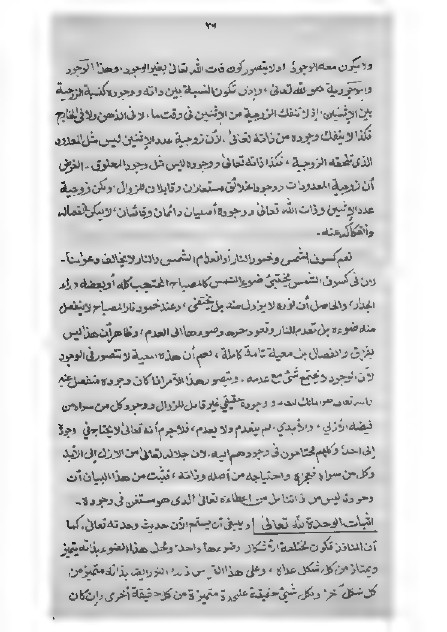 ٣٩
ولا يكون معه الوجود؟ اولا يتصور كون ذات الله تعالى بغير الوجود. وهذا الوجود
والموجودية هو لله تعالى، وإذن تكون النسبة بين ذاته ووجوده كنسبة الزوجية
بين الإثنين، إذ لا تنفك الزوجية من الإثنين في وقت ما، لا في الذهن ولا في الخارج
فكذا لا ينفك وجوده من ذاته تعالى، لأن زوجية عدد الإثنين ليس مثل المعدود
الذي تلحقه الزوجية، فكذا ذاته تعالى ووجوده ليس مثل وجود المخلوق. الغرض
أن زوجية المعدودات ووجود الخلائق مستعاران وقابلان للزوال. ولكن زوجية
عدد الإثنين وذات الله تعالى ووجوده أصليان دائمان وقائمان، لا يمكن انفصاله
وانفكاكه عنه.
نعم كسوف الشمس وخمود النار أو انعدام الشمس والنار لا يخالف دعوانا.
لأن في كسوف الشمس يختفي ضوء الشمس كالمصباح المحتجب كله أو بعضه وراء
الجدار، والحاصل أن نوره لا يزول عنه بل يختفي، وعند خمود نار المصباح لا ينفصل
عنه ضوءه بل تعدم النار ونعود حرها وضوءها الى العدم، وظاهر أن هذا ليس
بفرق وانفصال بل معية تامة كاملة، نعم أن هذه المعية لا تتصور في الوجود
لأن الوجود لا يجتمع شئ مع عدمه. وتصور هذا الأمر إذا كان وجوده منفصل عنه
وجوده حقيقي غير قابل للزوال ووجود كل من سواه من
فيضه الأزلي، والأبدي. لم ينقدم ولا يعدم، فلا جرم أنه تعالى لا يحتاج في وجوده
إلى احد وكلهم محتاجون في وجودهم اليه. لأن جلاله تعالى من الأزل إلى الأبد
وكل من سواه فعجزه واحتياجه من أصله وذاته، فثبت من هذا البيان أن
وجوده ليس من ذاتنا بل من إعطاءه تعالى الذي هو مستغن في وجوده.
اثبات الوحدة لله تعالى | وينبغي أن يستمع الآن حديث وحدته تعالى، كما
أن المنافذ تكون مختلفة الأشكال وضوءها واحد، ولكن هذا الضوء بذاته يتميز
ويمتاز من كل شكل عداه، وعلى هذا القياس بذاته متميز من
كل شكل آخر، ولكل شئ حقيقة علىحدة متميزة من كل حقيقة أخرى وإن كان